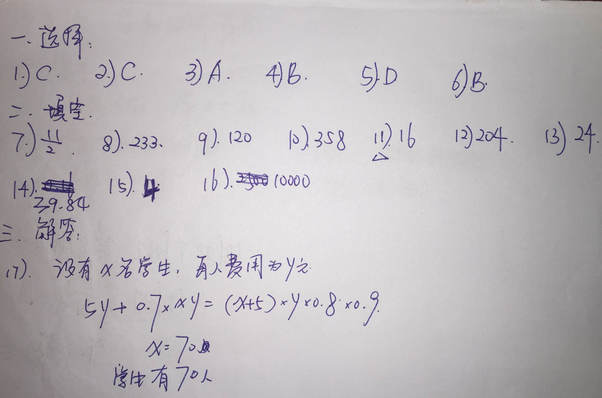 一. 选择:
1.) C. 2.) C. 3.) A. 4.) B. 5.) D 6.) B.
二. 填空.
7.) 11/2 8). 233. 9). 120 10). 358 11). 16 12) 204. 13) 24.
14). 39.84 15). 4 16). 10000
三. 解答:
17). 设有x名学生, 每人费用为y元
5y + 0.7×xy = (x+5)×y×0.8×0.9.
x = 70
学生有70人